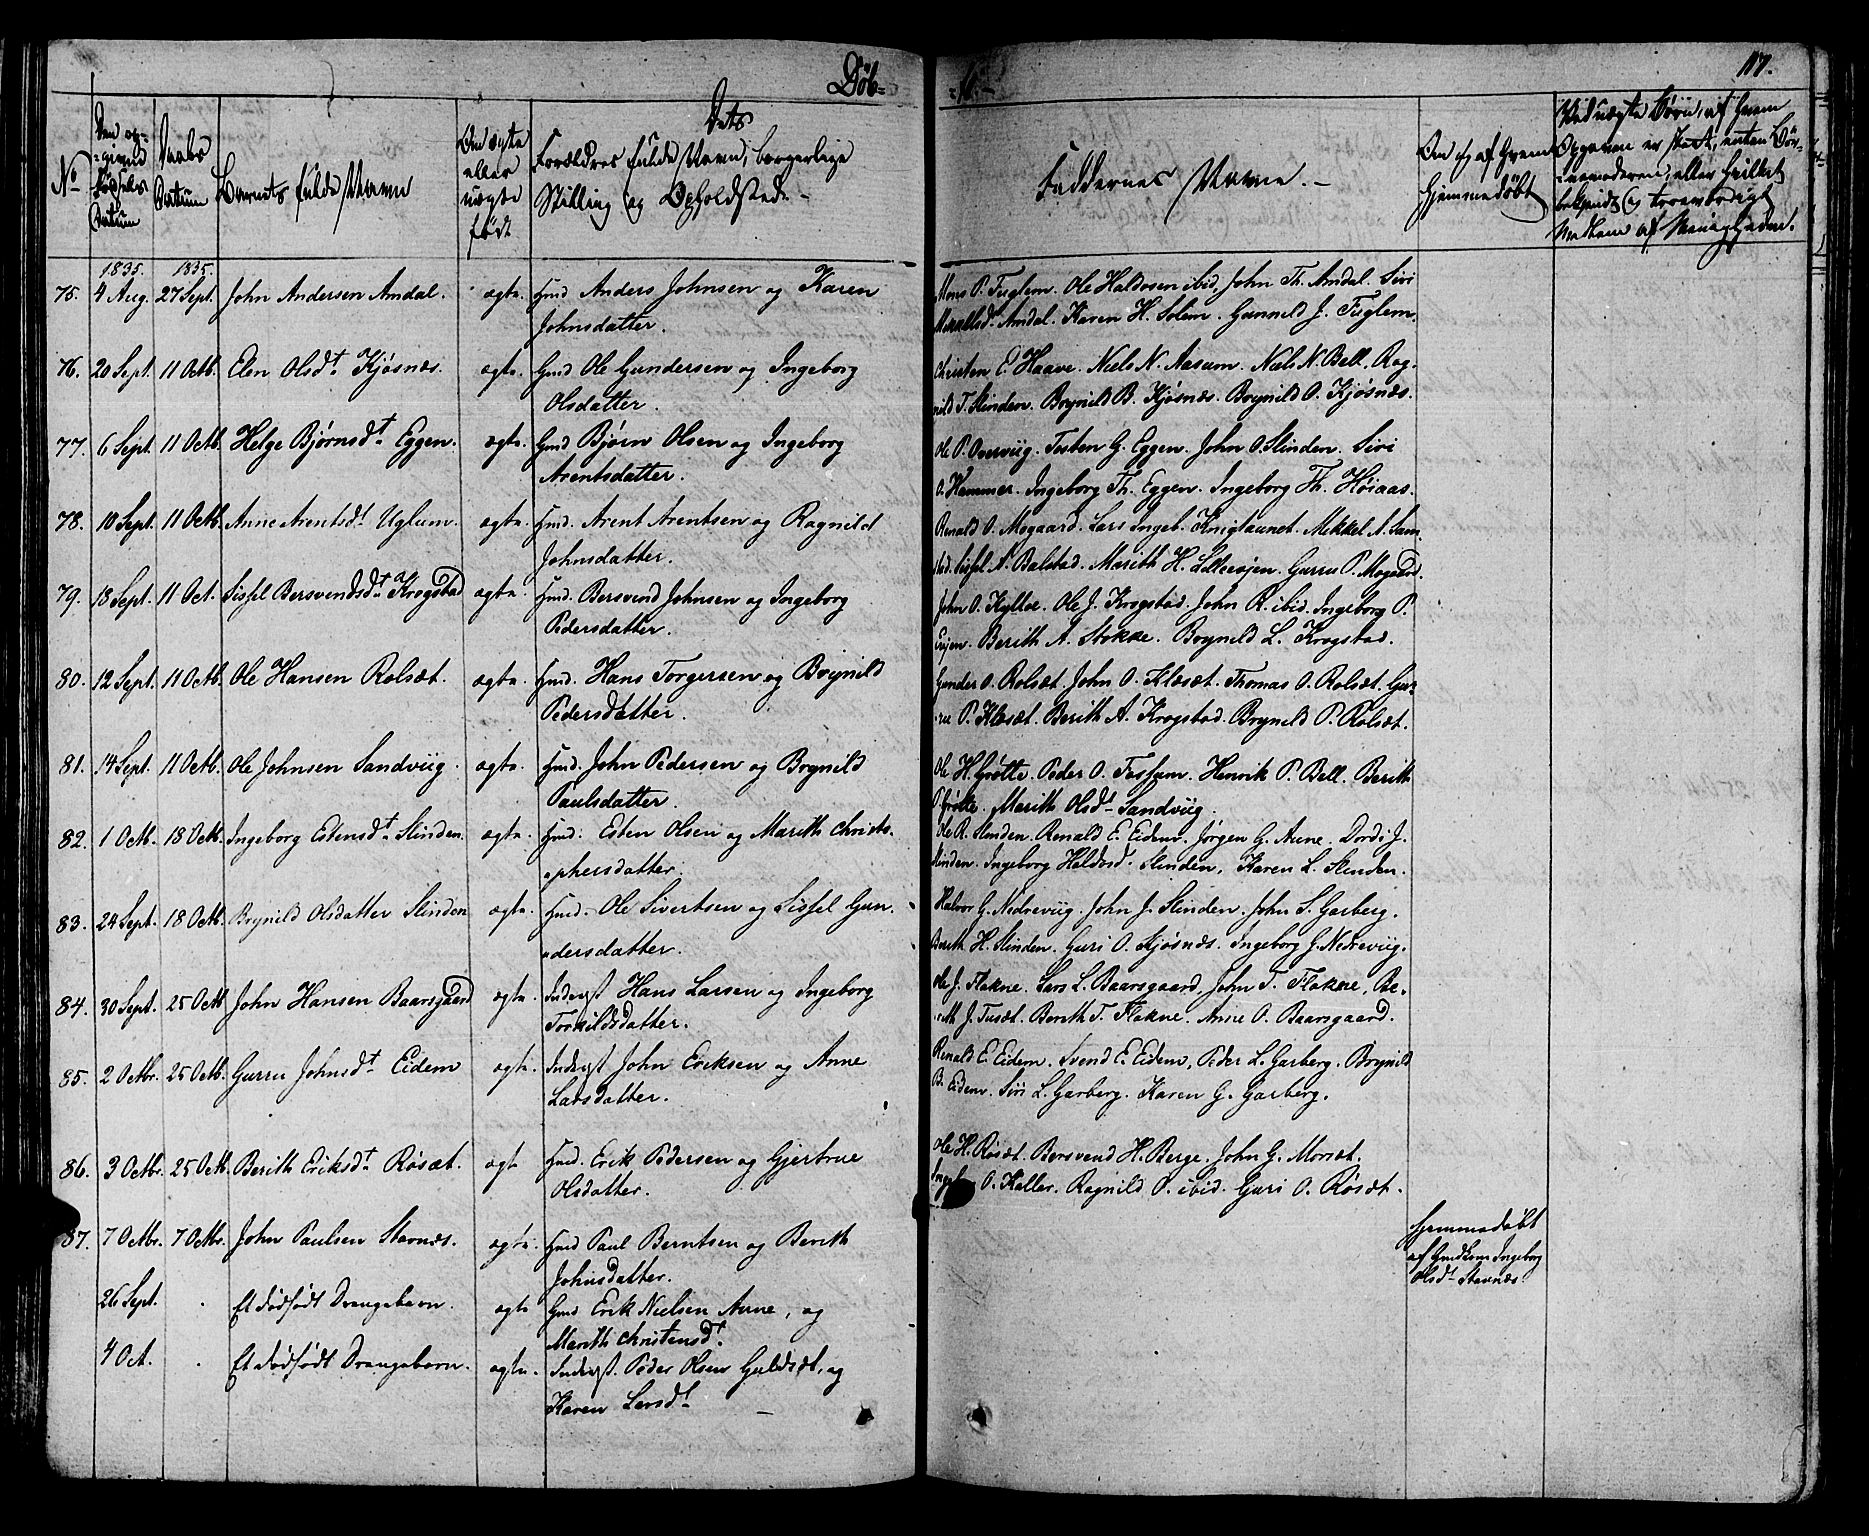 Døb-
=te.-
117.
No
Den op-
=givne
Fødsels
Datum
Daabs
Datum
Barnets fulde Navn
Om ægte
eller
uægte
født
Dets
Forældres fulde Navn, borgerlige
Stilling og Opholdsted.-
Faddernes Navne.-
Om og af Hvem
Hjemmedøbt
Ved uægte Børn, af Hvem
Opgaven er skeet, enten Bør-
nemoderen, eller hvilket
bekjendt og troværdigt
Medlem af Menigheden.
1835. 1835.
75. 4 Aug. 27 Sept. John Andersen Amdal. ægte. Hmd Anders Johnsen og Karen
Johnsdatter.
Mons P. Fuglem. Ole Haldosen ibid, John Th. Amdal. Siri
Mikkelsd. Amdal. Karen H. Solem. Gunnild J. Fuglem.
76. 20 Sept. 11 Octb. Elen Olsdt Kjøsnæs. ægte. Hmd. Ole Gundersen og Ingeborg
Olsdatter.
Christen E. Haave. Niels N. Aasum. Niels N. Bell. Rag-
nild T. Slinden. Brynild B. Kjøsnæs. Brynild O. Kjøsnæs.
77. 6 Sept. 11 Octb. Helge Bjørnsdt Eggen. ægte. Hmd Bjørn Olsen og Ingeborg
Arentsdatter.
Ole P. Overviig. Tosten G. Eggen. John O. Slinden. Siri
O. Hammer. Ingeborg Th. Eggen. Ingeborg Th. Høiaas.
78. 10 Sept. 11 Octb. Anne Arentsdt Uglum. ægte. Hmd. Arent Arentsen og Ragnild
Johnsdatter.
Renald O. Mogaard. Lars Ingeb. Knigtaunet. Mekkel A. Sam
stad. Sissel N. Balstad. Marith H. Lillevøjen. Gurru P. Mogaard.
79. 13 Sept. 11 Oct. Sissel Bersvendsdt Krogstad ægte. Hmd. Bersvend Johnsen og Ingeborg
Pedersdatter.
John O. Kylloe. Ole J. Krogstad. John R. ibid. Ingeborg P.
Evjen. Berith A. Stokke. Brynild L. Krogstad.
80. 12 Sept. 11 Octb. Ole Hansen Rolset. ægte. Hmd. Hans Torgersen og Brynild
Pedersdatter.
Gunder O. Rolset. John O. Klæset. Thomas O. Rolset. Gur-
=ru P. Klæset. Berith A. Krogstad. Brynild P. Rolset.
81. 14 Sept. 11 Octb. Ole Johnsen Sandviig. ægte. Hmd. John Pedersen og Brynild
Paulsdatter.
Ole H. Grøtte. Peder O. Fossum. Henrik P. Bell. Berith
P. Grøtte. Marith Olsdt Sandviig.
82. 1 Octb. 18 Octb. Ingeborg Estensdt Slinden. ægte. Hmd. Esten Olsen og Marith Christo
=phersdatter.
Ole R. Slinden. Renald E. Eidem. Jørgen G. Aune. Dordi J.
Slinden. Ingeborg Haldosdt. Slinden. Karen L. Slinden.
83. 24 Sept. 18 Octb. Brynild Olsdatter Slinden ægte. Hmd. Ole Sivertsen og Sissel Gun-
=dersdatter.
Halvor G. Nedreviig. John J. Slinden. John S. Garberg.
Berith H. Slinden. Guri O. Kjøsnæs. Ingeborg J. Nedreviig.
84. 30 Sept. 25 Octb John Hansen Baarsgaard ægte. Inderst Hans Larsen og Ingeborg
Torkildsdatter.
Ole J. Flakne. Lars L. Baarsgaard, John T. Flakne. Be-
rith J. Tuset. Berith T. Flakne. Anne O. Baarsgaard.
85. 2 Octbr. 25 Octb. Gurru Johnsdt Eidem ægte. Inderst John Eriksen og Anne
Larsdatter.
Renald E. Eidem. Svend E. Eidem, Peder L. Garberg. Brynild
B. Eidem. Siri L. Garberg. Karen G. Garberg.
86. 3 Octbr. 25 Octb. Berith Eriksdt Røset. ægte Hmd. Erik Pedersen og Gjertrue
Olsdatter.
Ole H. Røset. Bersvend H. Berge. John G. Morset.
O. Kaller. Ragnild P. ibid. Guri O. Røset.
87. 7 Octbr. 7 Octbr. John Paulsen Stavnæs. ægte. Hmd Paul Berntsen og Berith
Johnsdatter.
Hjemmedøbt
af Hmdkone Ingeborg
Olsdt Stavnæs.
26 Sept. . Et dødfødt Drengebarn. ægte Hmd Erik Nielsen Aune, og
Marith Christensdt.
4 Oct. . Et dødfødt Drengebarn. ægte. Inderst. Peder Olsen Guldset, og
Karen Larsdt -